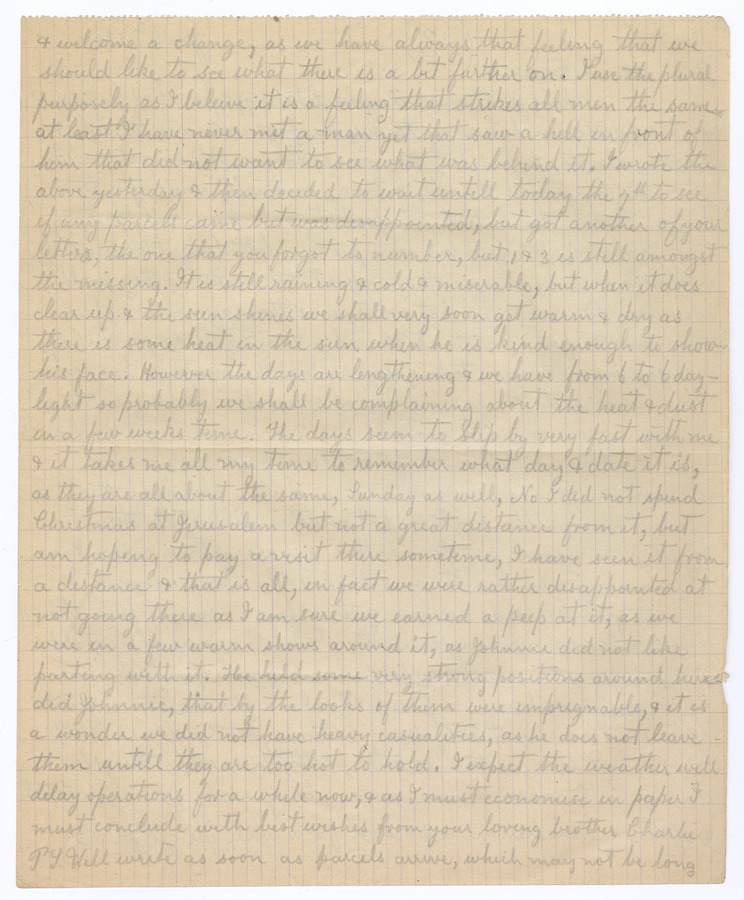 & welcome a change, as we have always that feeling that we
should like to see what there is a bit further on. I use the plural
purposely as I beleive it is a feeling that strikes all men the same
at least I have never met a man yet that saw a hill in front of
him that did not want to see what was behind it. I wrote the
above yesterday & then decided to wait untill today the 7th to see
if any parcels came but was disappointed, but got another of your
letters, the one that you forgot to number, but 1 & 3 is still amongst
the missing. It is still raining & cold & miserable, but when it does
clear up & the sun shines we shall very soon get warm & dry as
there is some heat in the sun when he is kind enough to show
his face. However the days are lengthening & we have from 6 to 6 day-
light so probably we shall be complaining about the heat & dust
in a few weeks time. The days seem to slip by very fast with me
& it takes me all my time to remember what day & date it is,
as they are all about the same, Sunday as well, No I did not spend
Christmas at Jerusalem but not a great distance from it, but
am hoping to pay a visit there sometime, I have seen it from
a distance & that is all, in fact we were rather disappointed at
not going there as I am sure we earned a peep at it, as we
were in a few warm shows around it, as Johnnie did not like
parting with it. He held some very strong positions around here
did Johnnie, that by the looks of them were impregnable, & it is
a wonder we did not have heavy casualities, as he does not leave
them untill they are too hot to hold. I expect the weather will
delay operations for a while now, & as I must economise in paper I
must conclude with best wishes from your loving brother Charlie
P.S. Will write as soon as parcels arrive, which may not be long